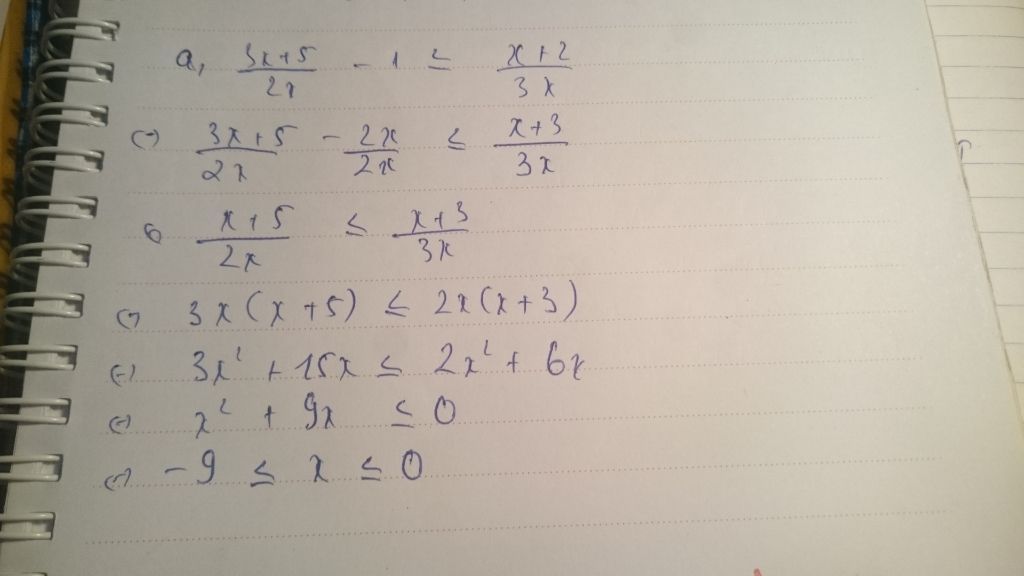 a, (3x+5)/(2x) - 1 ≤ (x+2)/(3x)
(-) (3x+5)/(2x) - (2x)/(2x) ≤ (x+3)/(3x)
(x+5)/(2x) ≤ (x+3)/(3x)
(-) 3x(x+5) ≤ 2x(x+3)
(-) 3x² + 15x ≤ 2x² + 6x
(-) x² + 9x ≤ 0
(-) -9 ≤ x ≤ 0